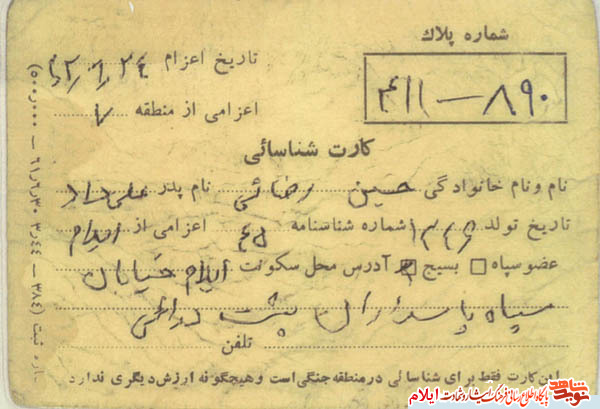 شماره پلاك
۴۱۱ — ۸۹۰
تاریخ اعزام ۶۲/۹/۲۴
اعزامی از منطقه ۷
کارت شناسائی
نام و نام خانوادگی حسین رضائی نام پدر علی داد
تاریخ تولد ۱۳۴۶ شماره شناسنامه ۶۵ اعزامی از ایلام
عضو سپاه بسیج آدرس محل سکونت ایلام خیابان
سپاه پاسداران پشت
تلفن
این کارت فقط برای شناسائی در منطقه جنگی است و هیچگونه ارزش دیگری ندارد
(۵۰۰ر۰۰۰ — ۶۱٫۶٫۳۰ ۳٫۴۴ — ۳۸٤) ثبت
نوید شاهد
پایگاه اطلاع رسانی فرهنگ ایثار و شهادت ایلام